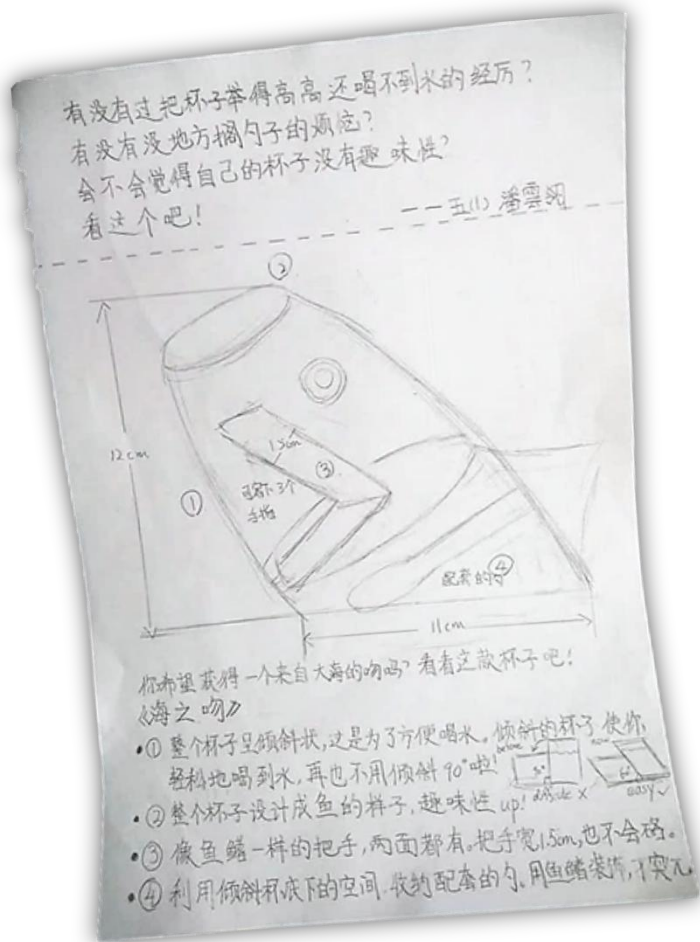 有没有过把杯子举得高高还喝不到水的经历?
有没有没地方搁勺子的烦恼?
会不会觉得自己的杯子没有趣味性?
看这个吧!
——五(1) 潘雲
②
12cm
1.5cm
③
①
可容下3个
手指
④
配套的勺
11cm
你希望获得一个来自大海的吻吗?看看这款杯子吧!
《海之吻》
•① 整个杯子呈倾斜状,这是为了方便喝水。倾斜的杯子使你
轻松地喝到水,再也不用倾斜90°啦!
before
90°
60°
easy✓
•② 整个杯子设计成鱼的样子,趣味性up!
•③ 像鱼鳍一样的把手,两面都有。把手宽1.5cm,也不会硌。
•④ 利用倾斜杯底下的空间,收纳配套的勺。用鱼鳍装饰,不突兀。